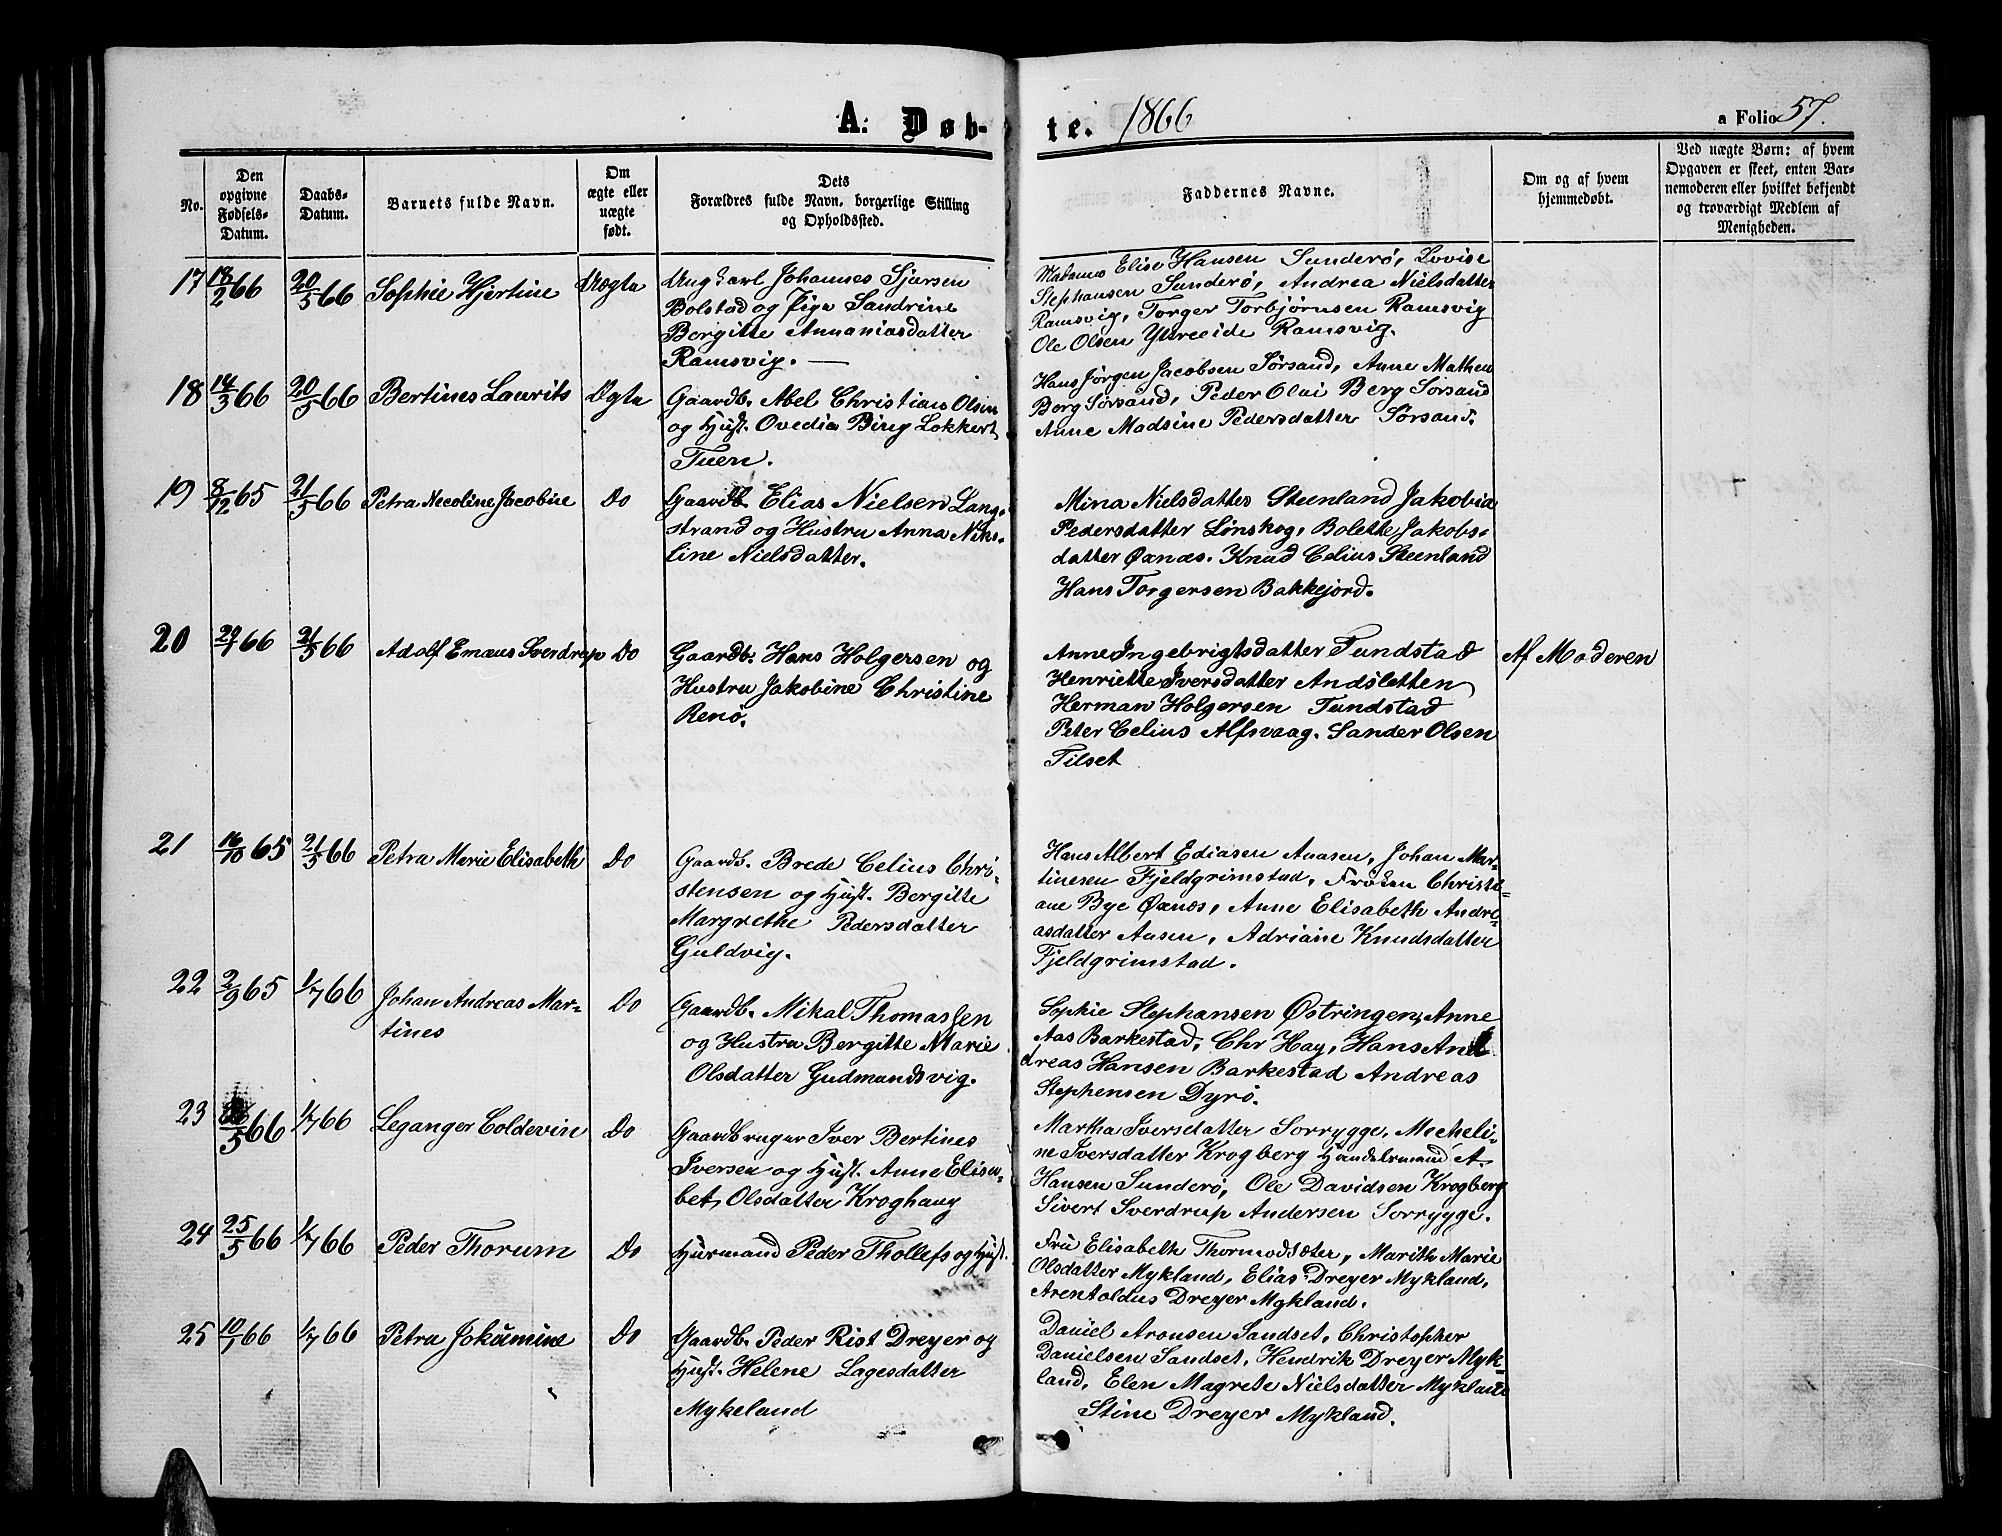 A. Døb-
te. 1866
a Folio 57.
No.
Den
opgivne
Fødsels-
Datum.
Daabs-
Datum.
Barnets fulde Navn.
Om
ægte eller
uægte
født.
Dets
Forældres fulde Navn, borgerlige Stilling
og Opholdssted.
Faddernes Navne.
Om og af hvem
hjemmedøbt.
Ved uægte Børn: af hvem
Opgaven er skeet, enten Bar-
nemoderen eller hvilket bekjendt
og troværdigt Medlem af
Menigheden.
17 18/2 66 20/5 66 Sophie Hjertine Uægte
Ungkarl Johannes Sjursen
Bolstad og Pige Sandrine
Bergitte Annaniasdatter
Ramsvig. —
Madame Elise Hansen Sunderø, Lovise
Stephansen Sunderø, Andrea Nielsdatter
Ramsvig, Torger Torbjørnsen Ramsvig
Ole Olsen Yttreeide Ramsvig.
18 14/3 66 20/5 66 Bertines Laurits Ægte
Gaardb. Abel Christian Olsen
og Hust. Ovedia Birg Lokkert
Tuen.
Hans Jørgen Jacobsen Sørsand, Anne Mathea
Berg Sørsand, Peder Olai Berg Sørsand
Anne Madsine Pedersdatter Sørsand.
19 8/12 65 21/5 66 Petra Necoline Jacobine Do
Gaardb. Elias Nielsen Lang-
strand og Hustru Anna Niko-
line Nielsdatter.
Mina Nielsdatter Steenland Jakobia
Pedersdatter Lønskog, Bolette Jakobs-
datter Øxnæs. Knud Celius Steenland
Hans Torgersen Bakkejord.
20 29/1 66 21/5 66 Adolf Emæus Sverdrup Do
Gaardb. Hans Holgersen og
Hustru Jakobine Christine
Renø.
Anne Ingebrigtsdatter Tundstad
Henriette Iversdatter Andsletten
Herman Holgersen Tundstad
Peter Celius Alfsvaag. Sander Olsen
Tilset
Af Moderen
21 16/10 65 21/5 66 Petra Marie Elisabeth Do
Gaardb. Brede Celius Chri-
stensen og Hust. Bergitte
Margrethe Pedersdatter
Guldvig.
Hans Albert Ediasen Aaasen, Johan Mar-
tinesen Fjeldgrimstad, Frøken Christi-
ane Bye Øxnæs, Anne Elisabeth Andre-
asdatter Aasen, Adriane Knudsdatter
Fjeldgrimstad.
22 2/9 65 1/7 66 Johan Andreas Mar-
tines Do
Gaardb. Mikal Thomassen
og Hustru Bergitte Marie
Olsdatter Gudmandsvig.
Sophie Stephansen Østringen, Anne
Aas Barkestad, Chr Hay, Hans And
dreas Hansen Barkestad Andreas
Stephensen Dyrø.
23 /5 66 1/7 66 Leganger Coldevin Do
Gaardbruger Iver Bertines
Iversen og Hust. Anne Elisa-
bet, Olsdatter Kroghaug
Martha Iversdatter Sorrygge, Micheli-
ne Iversdatter Krogberg Handelsmand A.
Hansen Sunderø, Ole Davidsen Krogberg
Sivert Sverdrup Andersen Sorrygge.
24 25/5 66 1/7 66 Peder Thorum Do
Husmand Peder Thollefs og Hust.
Fru Elisabeth Thormodsæter, Marith Marie
Olsdatter Mykland, Elias Dreyer Mykland,
Arentoldus Dreyer Mykland.
25 10/1 66 1/7 66 Petra Jokumine Do
Gaardb. Peder Rist Dreyer og
Hust. Helene Lagesdatter
Mykeland
Daniel Aronsen Sandset, Christopher
Danielsen Sandset, Hendrik Dreyer Myk-
land, Elen Magrete Nielsdatter Mykland
Stine Dreyer Mykland.